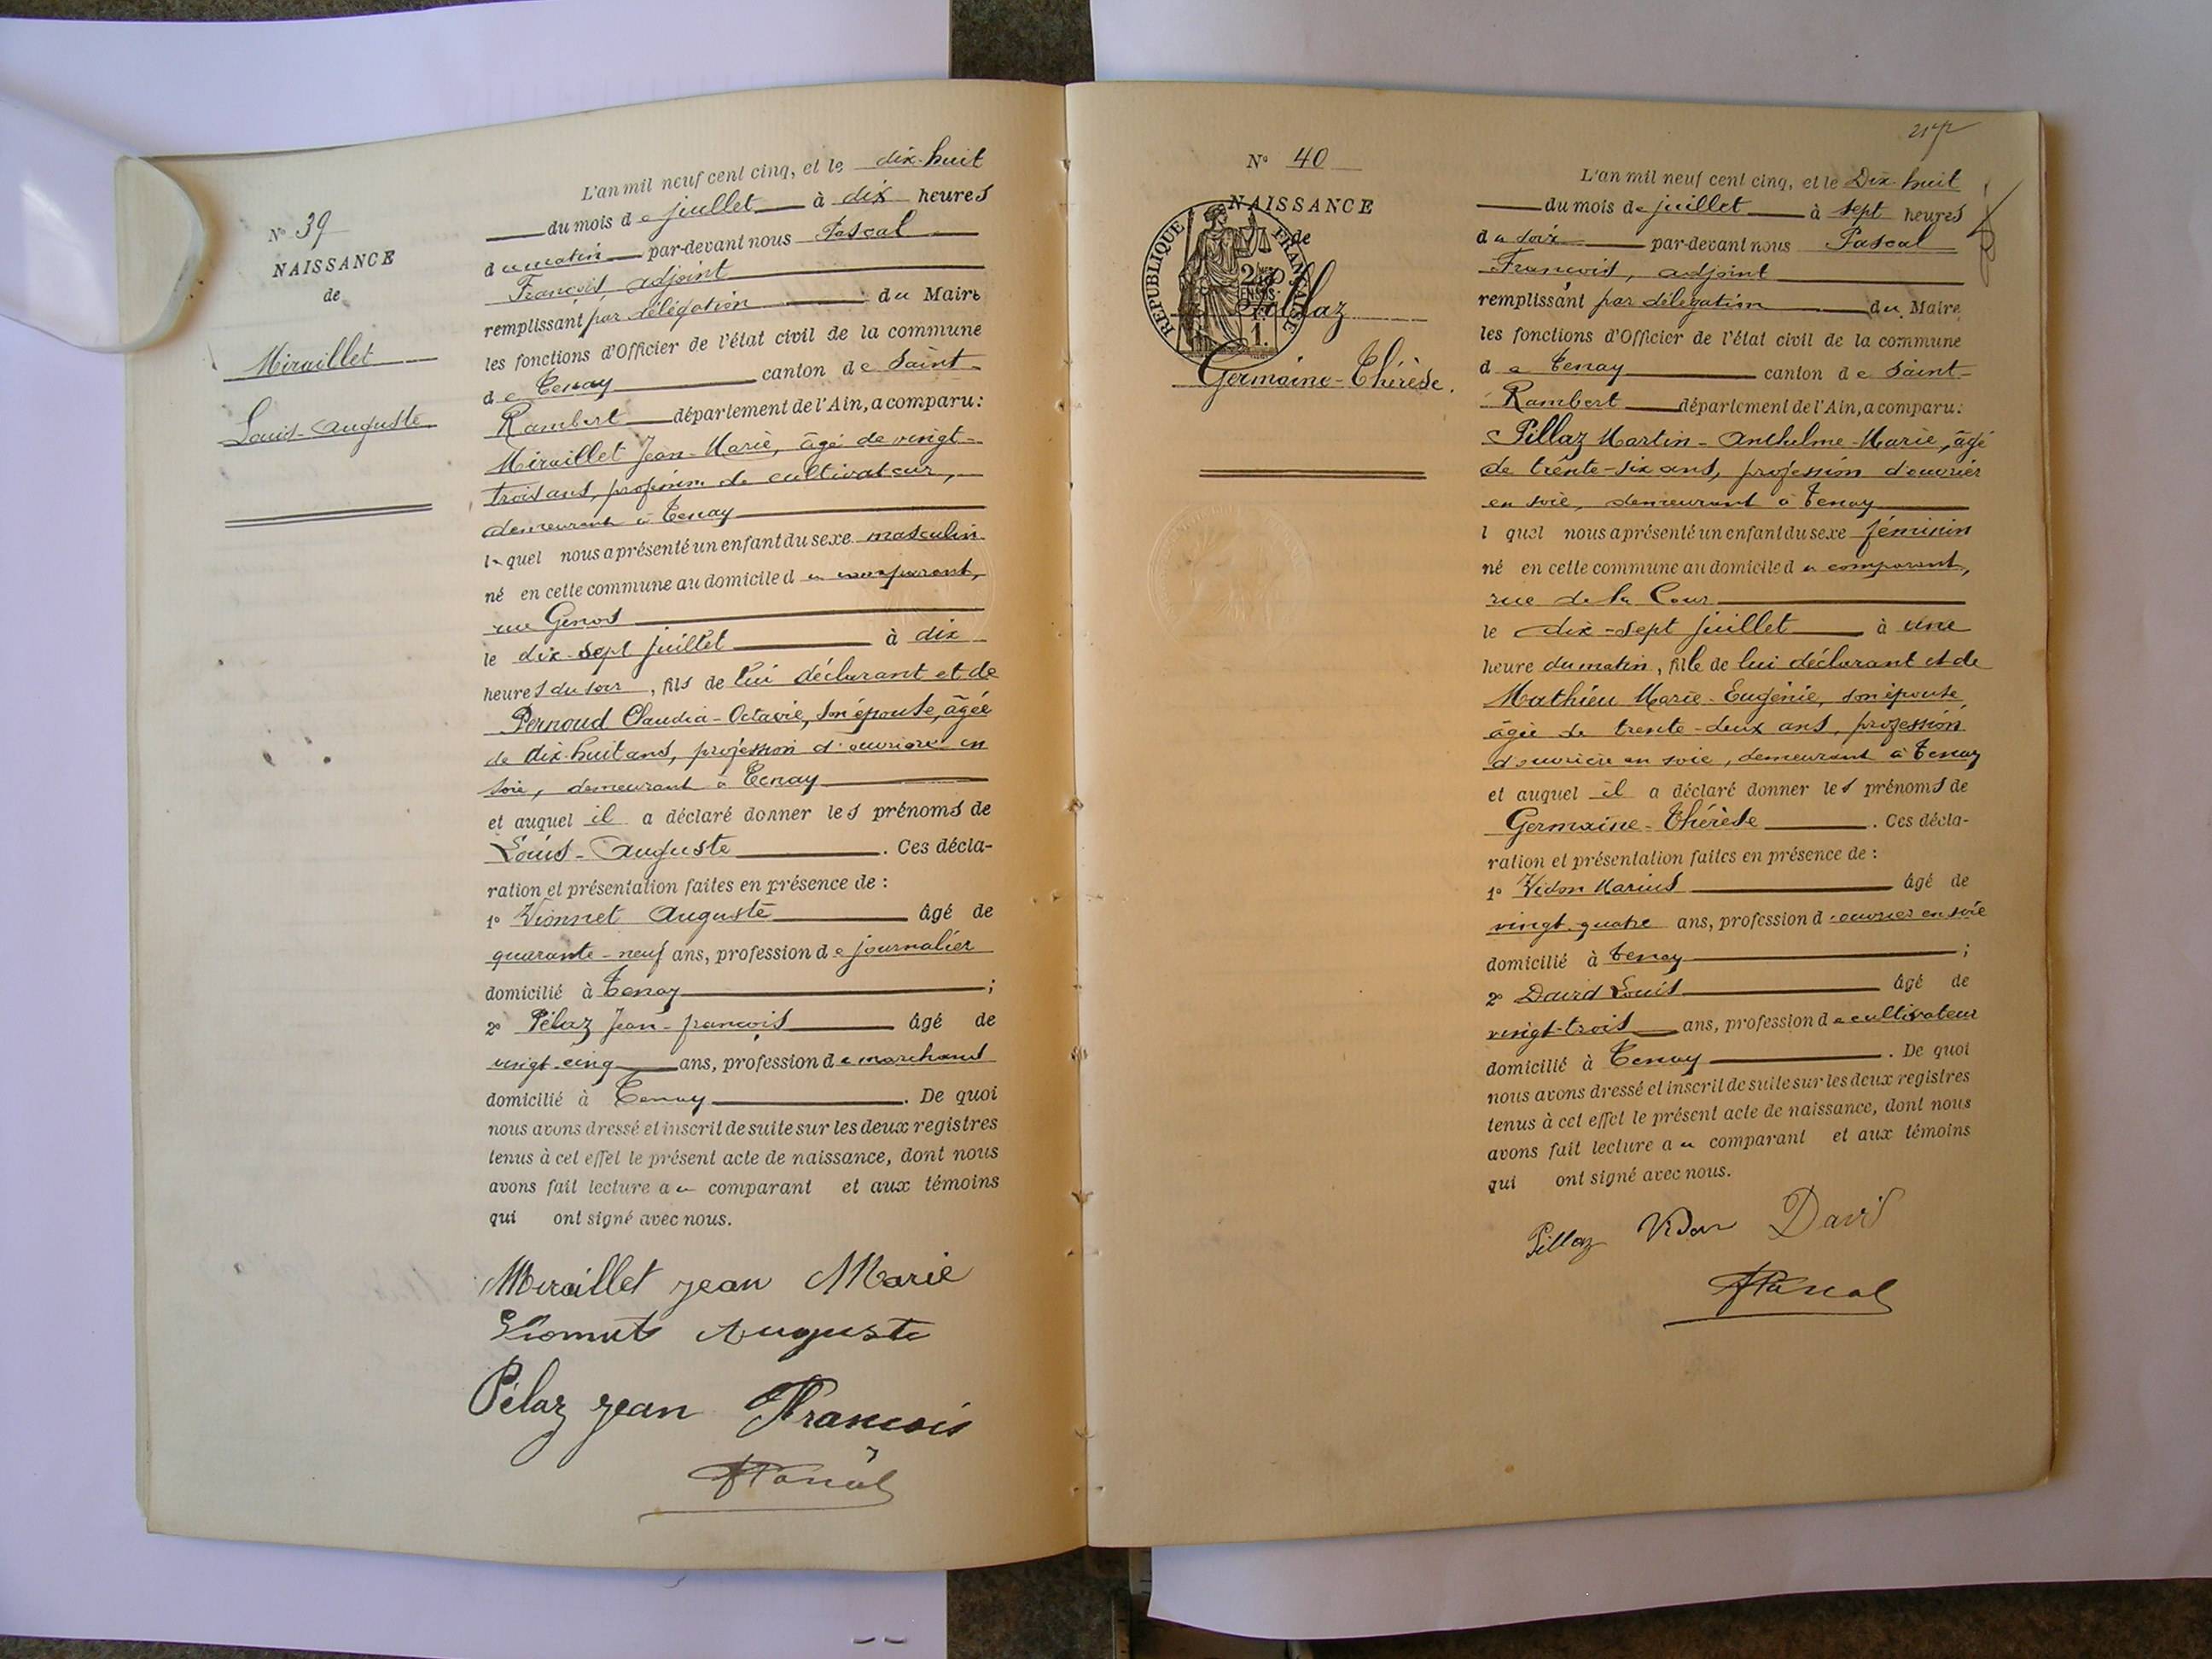 N° 39
NAISSANCE
de
Miraillet
Louis-Auguste
L'an mil neuf cent cinq, et le dix-huit
du mois de juillet à dix heures
du matin par-devant nous Pascal
François, adjoint
remplissant par délégation du Maire
les fonctions d'Officier de l'état civil de la commune
de Tenay canton de Saint-
Rambert département de l'Ain, a comparu:
Miraillet Jean-Marie, âgé de vingt-
trois ans, profession de cultivateur,
demeurant à Tenay
lequel nous a présenté un enfant du sexe masculin
né en cette commune au domicile du comparant,
rue Genod
le dix-sept juillet à dix
heures du soir, fils de lui déclarant et de
Pernoud Claudia-Octavie, son épouse, âgée
de dix-huit ans, profession d'ouvrière en
soie, demeurant à Tenay
et auquel il a déclaré donner les prénoms de
Louis-Auguste. Ces décla-
ration et présentation faites en présence de:
1° Vionnet Auguste âgé de
quarante-neuf ans, profession de journalier
domicilié à Tenay;
2° Pélaz Jean-françois âgé de
vingt-cinq ans, profession de marchand
domicilié à Tenay. De quoi
nous avons dressé et inscrit de suite sur les deux registres
tenus à cet effet le présent acte de naissance, dont nous
avons fait lecture au comparant et aux témoins
qui ont signé avec nous.
Miraillet jean Marie
Auguste
Pélaz jean François
FPascal
N° 40
NAISSANCE
de
RÉPUBLIQUE FRANÇAISE
Pillaz
Germaine-Thérèse.
L'an mil neuf cent cinq, et le Dix-huit
du mois de juillet à sept heures
du soir par-devant nous Pascal
François, adjoint
remplissant par délégation du Maire
les fonctions d'Officier de l'état civil de la commune
de Tenay canton de Saint-
Rambert département de l'Ain, a comparu:
Pillaz Martin-Anthelme-Marie, âgé
de trente-six ans, profession d'ouvrier
en soie, demeurant à Tenay
l quel nous a présenté un enfant du sexe féminin
né en cette commune au domicile du comparant,
rue de la Cour
le dix-sept juillet à une
heure du matin, fille de lui déclarant et de
Mathieu Marie-Eugénie, son épouse,
âgée de trente-deux ans, profession
d'ouvrière en soie, demeurant à Tenay
et auquel il a déclaré donner les prénoms de
Germaine-Thérèse. Ces décla-
ration et présentation faites en présence de:
1° Vidon Marius âgé de
vingt-quatre ans, profession d'ouvrier en soie
domicilié à Tenay;
2° David Louis âgé de
vingt-trois ans, profession de cultivateur
domicilié à Tenay. De quoi
nous avons dressé et inscrit de suite sur les deux registres
tenus à cet effet le présent acte de naissance, dont nous
avons fait lecture au comparant et aux témoins
qui ont signé avec nous.
Pillaz Vidon David
FPascal